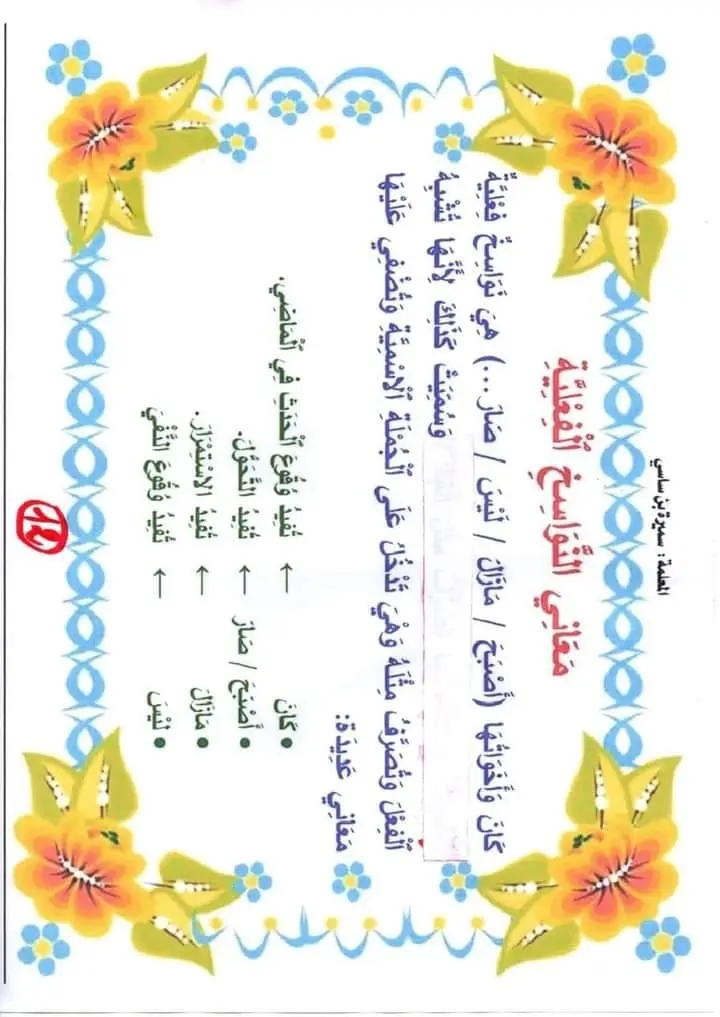 المعلمة : سميرة بن ساسي
مَعَانِي النَّوَاسِخِ الْفِعْلِيَّةِ
كَانَ وَأَخَوَاتُهَا (أَصْبَحَ / مَازَالَ / لَيْسَ / صَارَ ...) هِيَ نَوَاسِخٌ فِعْلِيَّةٌ
وَسُمِيَتْ كَذَلِكَ لِأَنَّهَا تُشْبِهُ
الْفِعْلَ وَتُصَرَّفُ مِثْلَهُ وَهْيَ تَدْخُلُ عَلَى الْجُمْلَةِ الْاسْمِيَّةِ وَتُضْفِي عَلَيْهَا
مَعَانِي عَدِيدَة:
• كَانَ ← تُفِيدُ وُقُوعَ الْحَدَثِ فِي الْمَاضِي.
• أَصْبَحَ / صَارَ ← تُفِيدُ التَّحَوُّلَ.
• مَازَالَ ← تُفِيدُ الاسْتِمْرَارَ.
• لَيْسَ ← تُفِيدُ وُقُوعَ النَّفْيِ